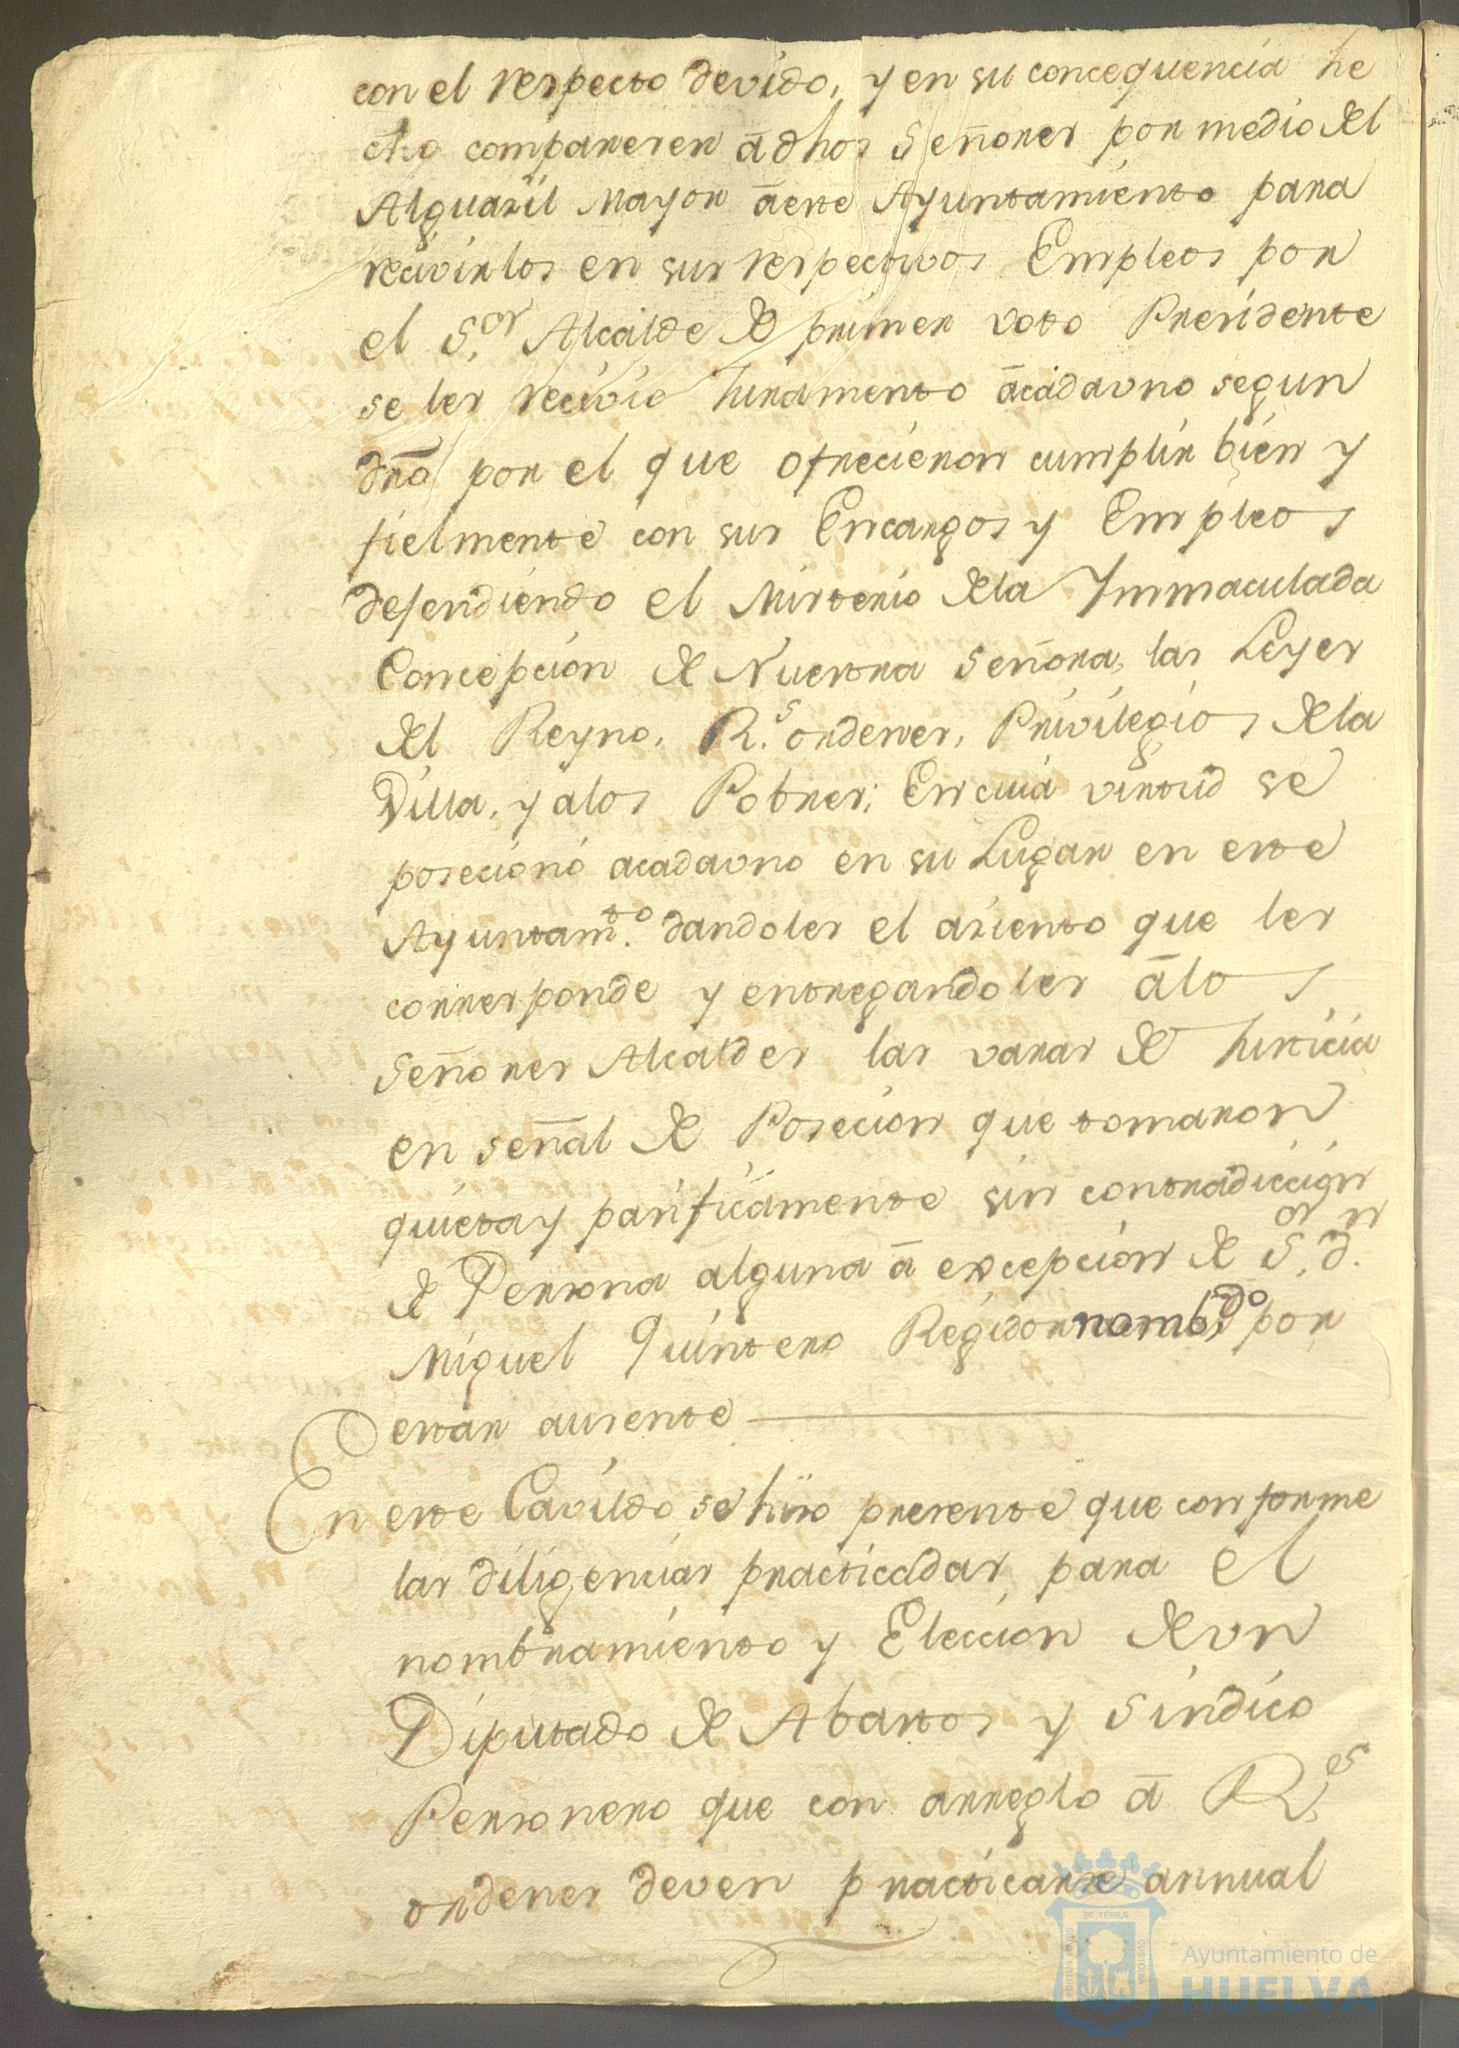 con el respecto devido, y en su concequencia he
cho compareser â dhos Señores por medio del
Alguazil Mayor â este Ayuntamiento para
recivirlos en sus respectivos Empleos por
el S.or Alcalde de primer voto Presidente
se les recivio Juramento â cada uno segun
dro por el que ofrecieron cumplir bien y
fielmente con sus Encargos y Empleos
defendiendo el Misterio de la Ymmaculada
Concepcion de Nuestra Señora, las Leyes
del Reyno, R.s ordenes, Privilegios de la
Villa, y a los Pobres; En cuia virtud se
posecionó a cada uno en su Lugar en este
Ayuntam.to dandoles el asiento que les
corresponde y entregandoles â los
Señores Alcaldes las varas de Justicia
en señal de Posecion que tomaron
quieta y pasificamente sin contradiccion
de Persona alguna â excepcion de S.or D.n
Miguel Quintero Regidor nomb.do por
estar ausente
En este Cavildo se hizo presente que conforme
las diligencias practicadas para el
nombramiento y Eleccion de un
Diputado de Abastos y Sindico
Personero que con arreglo â R.es
ordenes deven practicarse annual
Ayuntamiento de
HUELVA